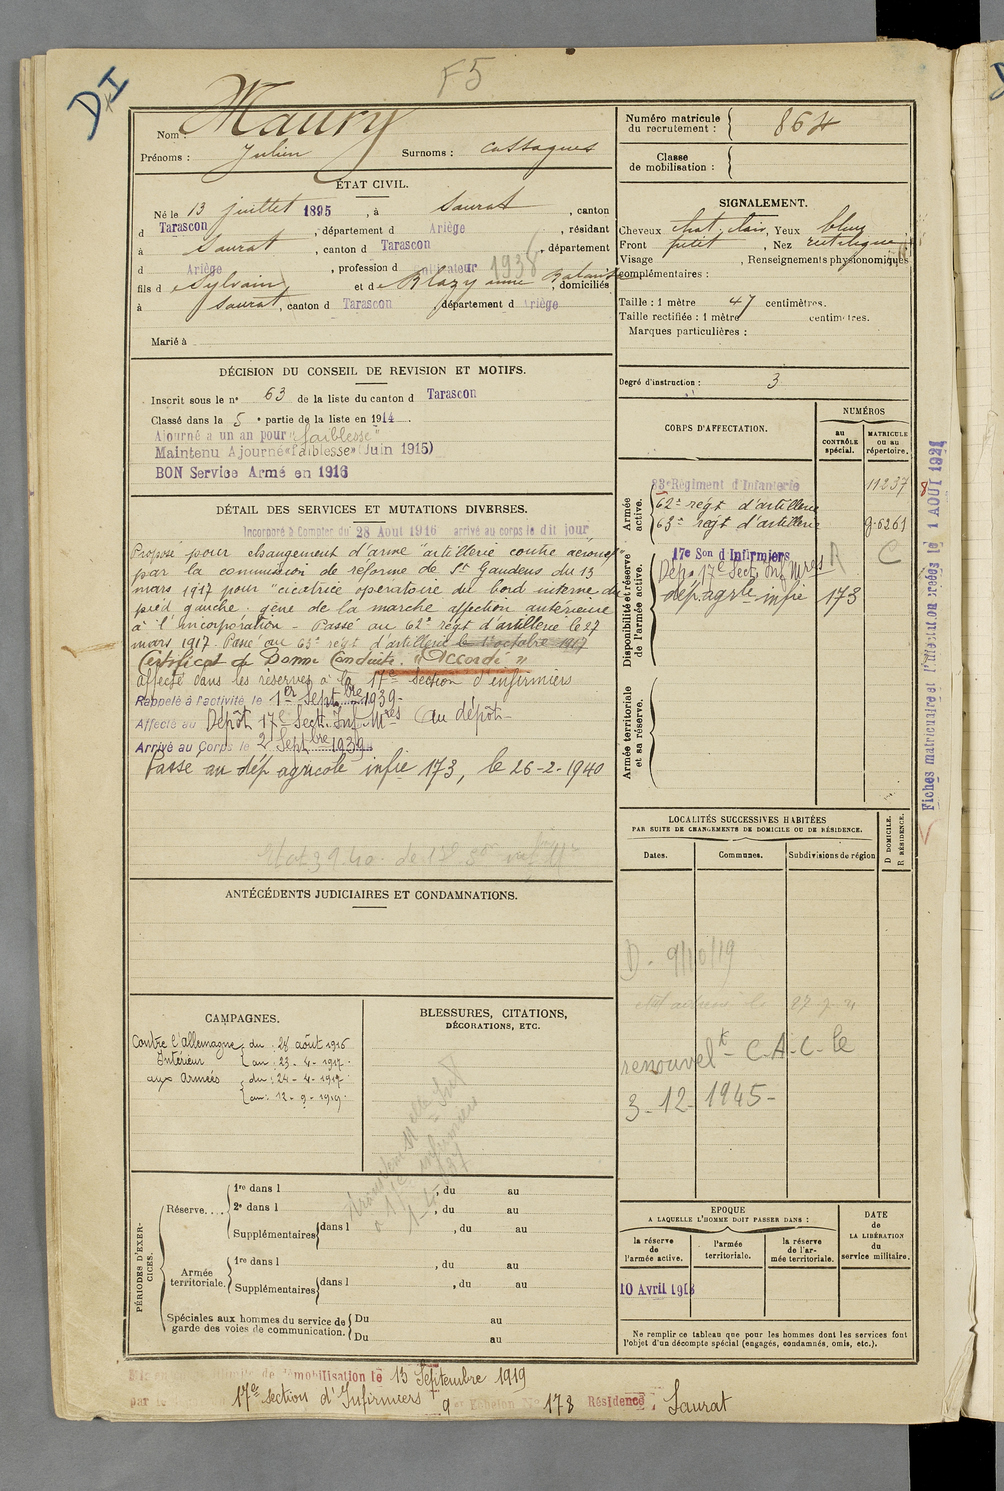 F5
D I
Nom : Maury
Prénoms : Julien Surnoms : Cassagnes
Numéro matricule du recrutement : 864
Classe de mobilisation :
ÉTAT CIVIL.
Né le 13 juillet 1895, à Saurat, canton
d Tarascon, département d Ariège, résidant
à Saurat, canton d Tarascon, département
d Ariège, profession d cultivateur 1938
fils d e Sylvain et de Blazy anne, domiciliés
à Saurat, canton d Tarascon département d Ariège
Marié à
SIGNALEMENT.
Cheveux chat. clair, Yeux bleus
Front petit, Nez rectiligne
Visage , Renseignements physionomiques
complémentaires :
Taille : 1 mètre 47 centimètres.
Taille rectifiée : 1 mètre centimètres.
Marques particulières :
Degré d'instruction : 3
DÉCISION DU CONSEIL DE REVISION ET MOTIFS.
Inscrit sous le n° 63 de la liste du canton d Tarascon
Classé dans la 5 e partie de la liste en 1914.
Ajourné a un an pour "faiblesse"
Maintenu Ajourné «faiblesse» (Juin 1915)
BON Service Armé en 1916
DÉTAIL DES SERVICES ET MUTATIONS DIVERSES.
Incorporé à Compter du 28 Aout 1916 arrivé au corps le dit jour
Proposé pour changement d'arme "artillerie contre aéronef"
par la commission de réforme de St Gaudens du 13
mars 1917 pour "cicatrice opératoire du bord interne du
pied gauche. gêne de la marche affection antérieure
à l'incorporation - Passé au 62e régt d'artillerie le 27
mars 1917. Passé au 63e régt d'artillerie le 1er octobre 1917
Certificat de Bonne Conduite. "Accordé"
affecté dans les réserves à la 17e Section d'infirmiers
Rappelé à l'activité le 1er Septbre 1939-
Affecté au Dépôt 17e Sect. Inf Mres au dépôt-
Arrivé au Corps le 2 Septbre 1939
Passé au dép agricole infie 173, le 26-2-1940
CORPS D'AFFECTATION.
NUMÉROS
au CONTRÔLE spécial.
MATRICULE ou au répertoire.
Armée active.
83e Régiment d'Infanterie 11237
62e régt d'artillerie
63e régt d'artillerie 9-6261
Disponibilité et réserve de l'armée active.
17e Son d'Infirmiers R C
Dépôt 17e Sect. Inf Mres
dép. agrle infie 173
Armée territoriale et sa réserve.
Fiches matriculaire et d'affectation créées le 1 AOUT 1921
LOCALITÉS SUCCESSIVES HABITÉES
PAR SUITE DE CHANGEMENTS DE DOMICILE OU DE RÉSIDENCE.
Dates. Communes. Subdivisions de région
D DOMICILE.
R RÉSIDENCE.
D - 9/10/19
renouvelt - C.A.C. le
3-12-1945-
ANTÉCÉDENTS JUDICIAIRES ET CONDAMNATIONS.
CAMPAGNES.
Contre l'Allemagne du : 28 août 1916
Intérieur au : 23 - 4 - 1917.
aux Armées du : 24 - 4 - 1917.
au : 12 - 9 - 1919.
BLESSURES, CITATIONS,
DÉCORATIONS, ETC.
PÉRIODES D'EXERCICES.
Réserve....
1re dans l , du au
2e dans l , du au
Supplémentaires dans l , du au
Armée territoriale.
1re dans l , du au
Supplémentaires dans l , du au
Spéciales aux hommes du service de garde des voies de communication.
Du au
Du au
EPOQUE
A LAQUELLE L'HOMME DOIT PASSER DANS :
la réserve de l'armée active.
l'armée territoriale.
la réserve de l'armée territoriale.
DATE de LA LIBÉRATION du service militaire.
10 Avril 1918
Ne remplir ce tableau que pour les hommes dont les services font
l'objet d'un décompte spécial (engagés, condamnés, omis, etc.).
de démobilisation le 13 Septembre 1919
par le 17e section d'Infirmiers 9e Echelon No 178 Résidence : Saurat